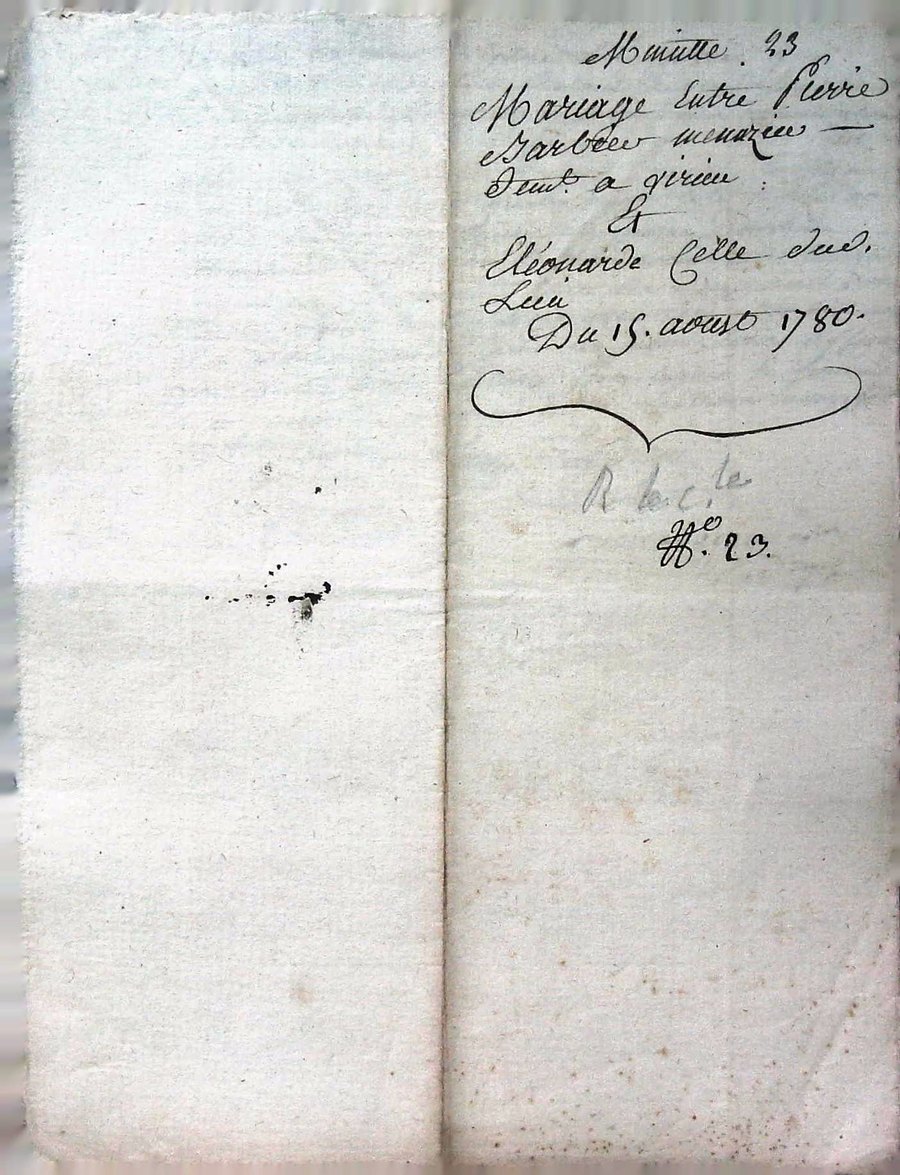 Minutte. 23
Mariage Entre Pierre
Barbier menuzier —
demt. a virieu
Et
Eléonarde Celle dud.
Lieu
Du 15. aoust 1780.
R
No. 23.